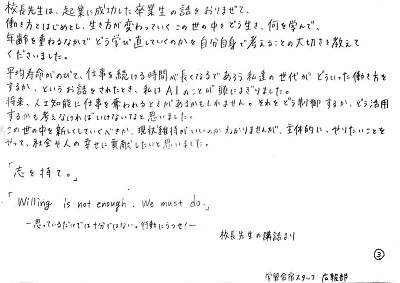 校長先生は、起業に成功した卒業生の話をおりまぜて、
働き方をはじめとし、生き方が変わっていくこの世の中をどう生き、何を学んで、
年齢を重ねるなかでどう学び直していくのかを自分自身で考えることの大切さを教えて
くださいました。
平均寿命がのびて、仕事を続ける時間が長くなるであろう私達の世代がどういった働き方を
するか、というお話をされたとき、私はAIのことが頭によぎりました。
将来、人工知能に仕事を奪われるときがあるかもしれません。それをどう制御するか、どう活用
するかも考えなければいけないなと思いました。
この世の中を新しくしていくべきか、現状維持がいいのかわかりませんが、主体的に、やりたいことを
やって、社会や人の幸せに貢献したいと思いました。
「志を持て。」
「Willing is not enough. We must do.」
ー思っているだけでは十分ではない。行動にうつせ!ー
校長先生の講話より
③
学習合宿スタッフ 広報部